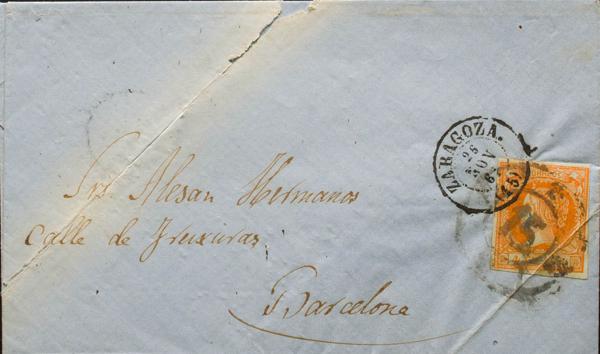 ZARAGOZA.
28
NOV
(43)
Srs Alesan Hermanos
calle de Freixuras
Barcelona